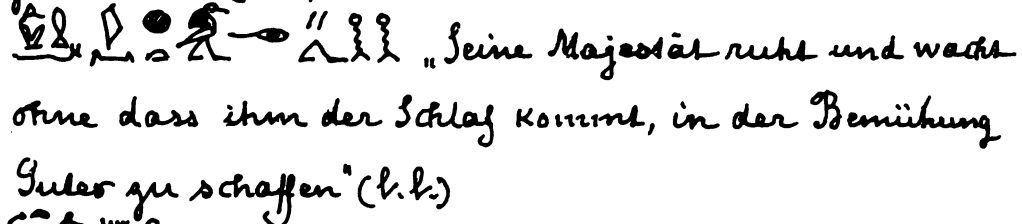 „Seine Majestät ruht und wacht
ohne dass ihm der Schlaf kommt, in der Bemühung
Gutes zu schaffen" (l.l.)